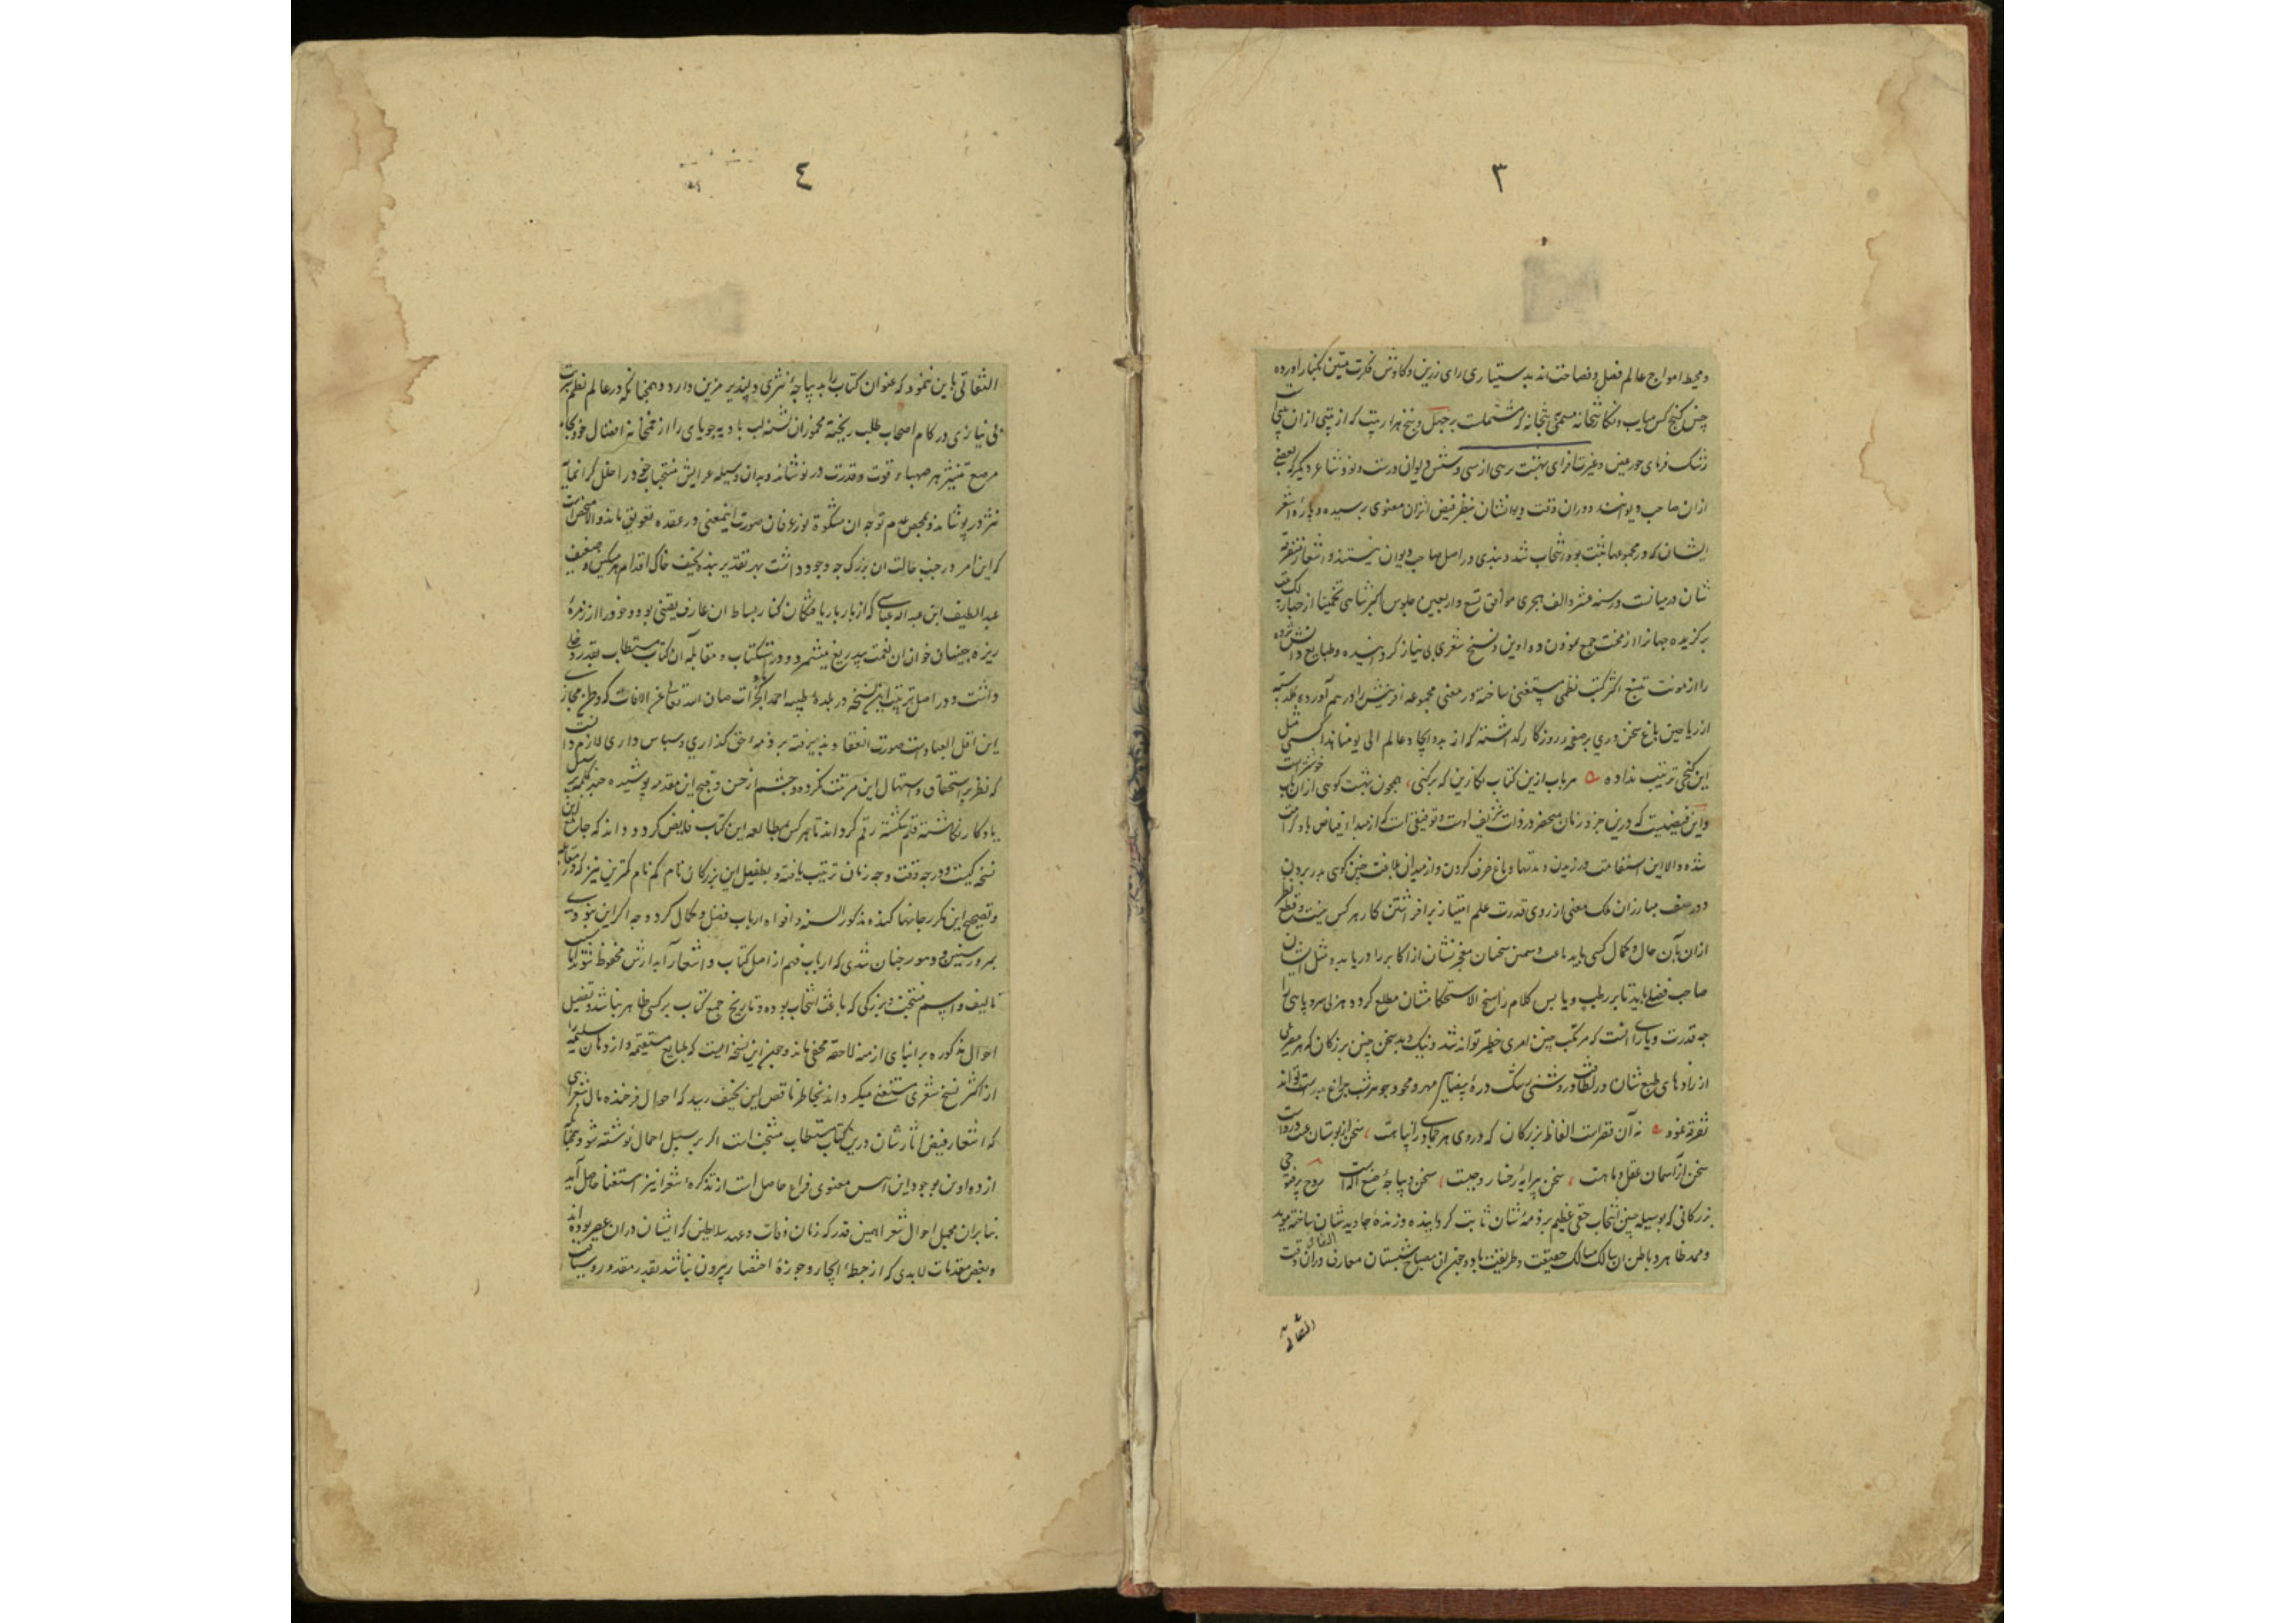 ٣
ومحیط امواج عالم فضل و فصاحت‌اند بدستیاری رای زرین و کاوش فکرت متین بکنار آورده
چنین گنج کس میاب و نگارخانه مسمی بتخانه که مشتملست بر چهل و پنج هزار بیت که از بیتی از ان
رشک فرمای حور عین و غیرت افزای بهشت برین از سی و شش دیوان درست و نود شاعر دیگر که بعضی
ازان صاحب دیوانند و دران وقت دیوانشان بنظر فیض اثر ان معنوی رسیده و پارهٔ اشعار
ایشان که در مجموعها ثبت بوده انتخاب شد و بندی در اصل صاحب دیوان نیستند و اشعار متفرقه
شان درمیانست در سنه عشر و الف هجری موافق تسع و اربعین جلوس اکبر شاهی تخمینا از
برگزیده جهانرا از محنت جمع نمودن دواوین و نسخ شعری بی نیاز گردانیده و طبایع
را از مونت تتبع اکثر کتب نظمی مستغنی ساخته در معنی مجموعه آفرینش را درهم آورده گلدسته
از ریاحین باغ سخن وری بر صفحه روزگار گذاشته که از بدو ایجاد عالم الی یومنا هذا کسی مثل
این گنجی ترتیب نداده هر باب ازین کتاب نگارین که برکنی همچون بهشت گوئی ازان باب خوشترست
و این فیضیست که درین جزو زمان منحصر در ذات شریف اوست و توفیقی است که از مبداء فیاض باو کرامت
شده والا این استقامت ورزیدن و مدتها دماغ صرف کردن و از میدان بلاغت چنین گوی بدر بردن
و در صف مبارزان ملک معنی از روی قدرت علم امتیاز برافراشتن کار هر کس نیست و قطع نظر
ازان بآن حال و کمال کسی باید
صاحب فضلی باید تا بر رطب و یابس کلام راسخ الاستحکامشان مطلع گردد هر بی سر و پای را
چه قدرت و یارای آنست که مرتکب چنین امری خطیر تواند شد و نیک و بد سخن چنین بزرگان که
از زادهای طبع شان در لطافت و روشنی
تفرقه نمود نه آن فقراست الفاظ بزرگان که در وی هر جمادی را نباهت سخن از بوستان
سخن از آسمان عقل ماهت سخن پیرایهٔ رخسار سخن دیباجهٔ صنع اله است
بزرگانی که بوسیله چنین انتخاب حقی عظیم بر ذمهٔ شان ثابت گردانیده و زنده جاوید شان ساخته
و ممد ظاهر و باطن ان سالک مسالک حقیقت و طریقت بود و چون ان مصباح شبستان معارف دران وقت
التفاتی
٤
التفاتی باین ننمود که عنوان کتاب را بدیباجهٔ نثری دلپذیر مزین دارد و همچنانکه در عالم نظم
بی نیازی در کام اصحاب طلب ریخته مخموران تشنه لب بادیه جویای را از خمخانه افضال خود بجام
مرصع نثر هم صهباء قوت و قدرت درنوشاند و بدان وسیله عرایش منتخبات خود را حلل گرانمایه
نثر درپوشاند و بمحض عدم توجه ان مشکوة نور عرفان صورت اینمعنی در عقده تعویق ماند والا
که این امر در جنب حالت ان بزرگ چه وجود داشت بهر تقدیر بنده نحیف خاک اقدام هر مسکین و ضعیف
عبد اللطیف ابن عبد الله عباسی که از باریافتگان کنار بساط ان عارف یقینی بود و خود را از زمرهٔ
ریزه چینان خوان ان نعمت بیدریغ میشمرد و در استکتاب و مقابلهٔ آن کتاب مستطاب بقدر دخلی
داشت و در اصل ترتیب این نسخه در بلدهٔ طیبه احمد آباد گجرات صان الله تعالی عن الافات که وطن مجاز
این اقل العباد است صورت انعقاد پذیرفته بر ذمهٔ حق گذاری و سپاس داری لازم دانست
که نظر بر استحقاق و استیهال این مرتبت نکرده و چشم از حسن و قبح این مقدمه پوشیده چند کلمه بر سبیل
یادگار نگاشتهٔ قلم شکسته رقم گرداند تا هر کس بمطالعهٔ این کتاب فایض گردد داند که جامع این
نسخه کیست و در چه وقت و چه زمان ترتیب یافته و بطفیل این بزرگان نام گم نام کمترین نیز که در مقابله
و تصحیح این مکرر جانها کنده مذکور السنه و افواه ارباب فضل و کمال گردد چه اگر این نبودی
بمرور سنین و دهور چنان شدی که ارباب فهم از اصل کتاب و اشعار آبدارش محظوظ شوند اما سبب
تالیف و اسم منتخب و بزرگی که باعث انتخاب بوده و تاریخ جمع کتاب بر کسی ظاهر نباشد و تفصیل
احوال مذکوره بر ابنای ازمنه لاحقه مخفی ماند و چون این نسخه ایست که طبایع مستقیمه و اذهان سلیمه را
از اکثر نسخ شعری مستغنی میگرداند بخاطر ناقص این نحیف رسید که احوال فرخنده مال شعرای
که اشعار فیض اثارشان درین کتاب مستطاب منتخب است اگر بر سبیل اجمال نوشته شود
از دواوین بوجود این انیس معنوی فراغ حاصل است از تذکره شعرا نیز استغنا حاصل آید
بنابران مجمل احوال شعرا همین قدر که زمان وفات و عهد سلاطین که ایشان دران عصر بوده‌اند
و بعض مقدمات لابدی که از حیطهٔ ایجاز و حوزهٔ اختصار بیرون نباشد بقدر مقدور